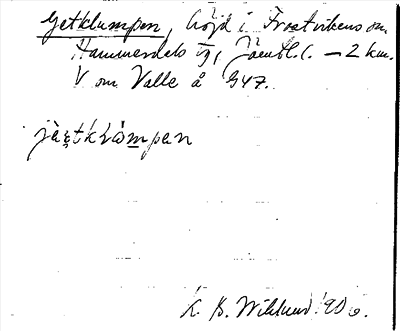 Getklumpen, höjd i Frostvikens sn
Hammerdals tg, Jämtl. l. – 2 km.
V om Valle å 947.
jä̀tklåmpen
K. B. Wiklund 190